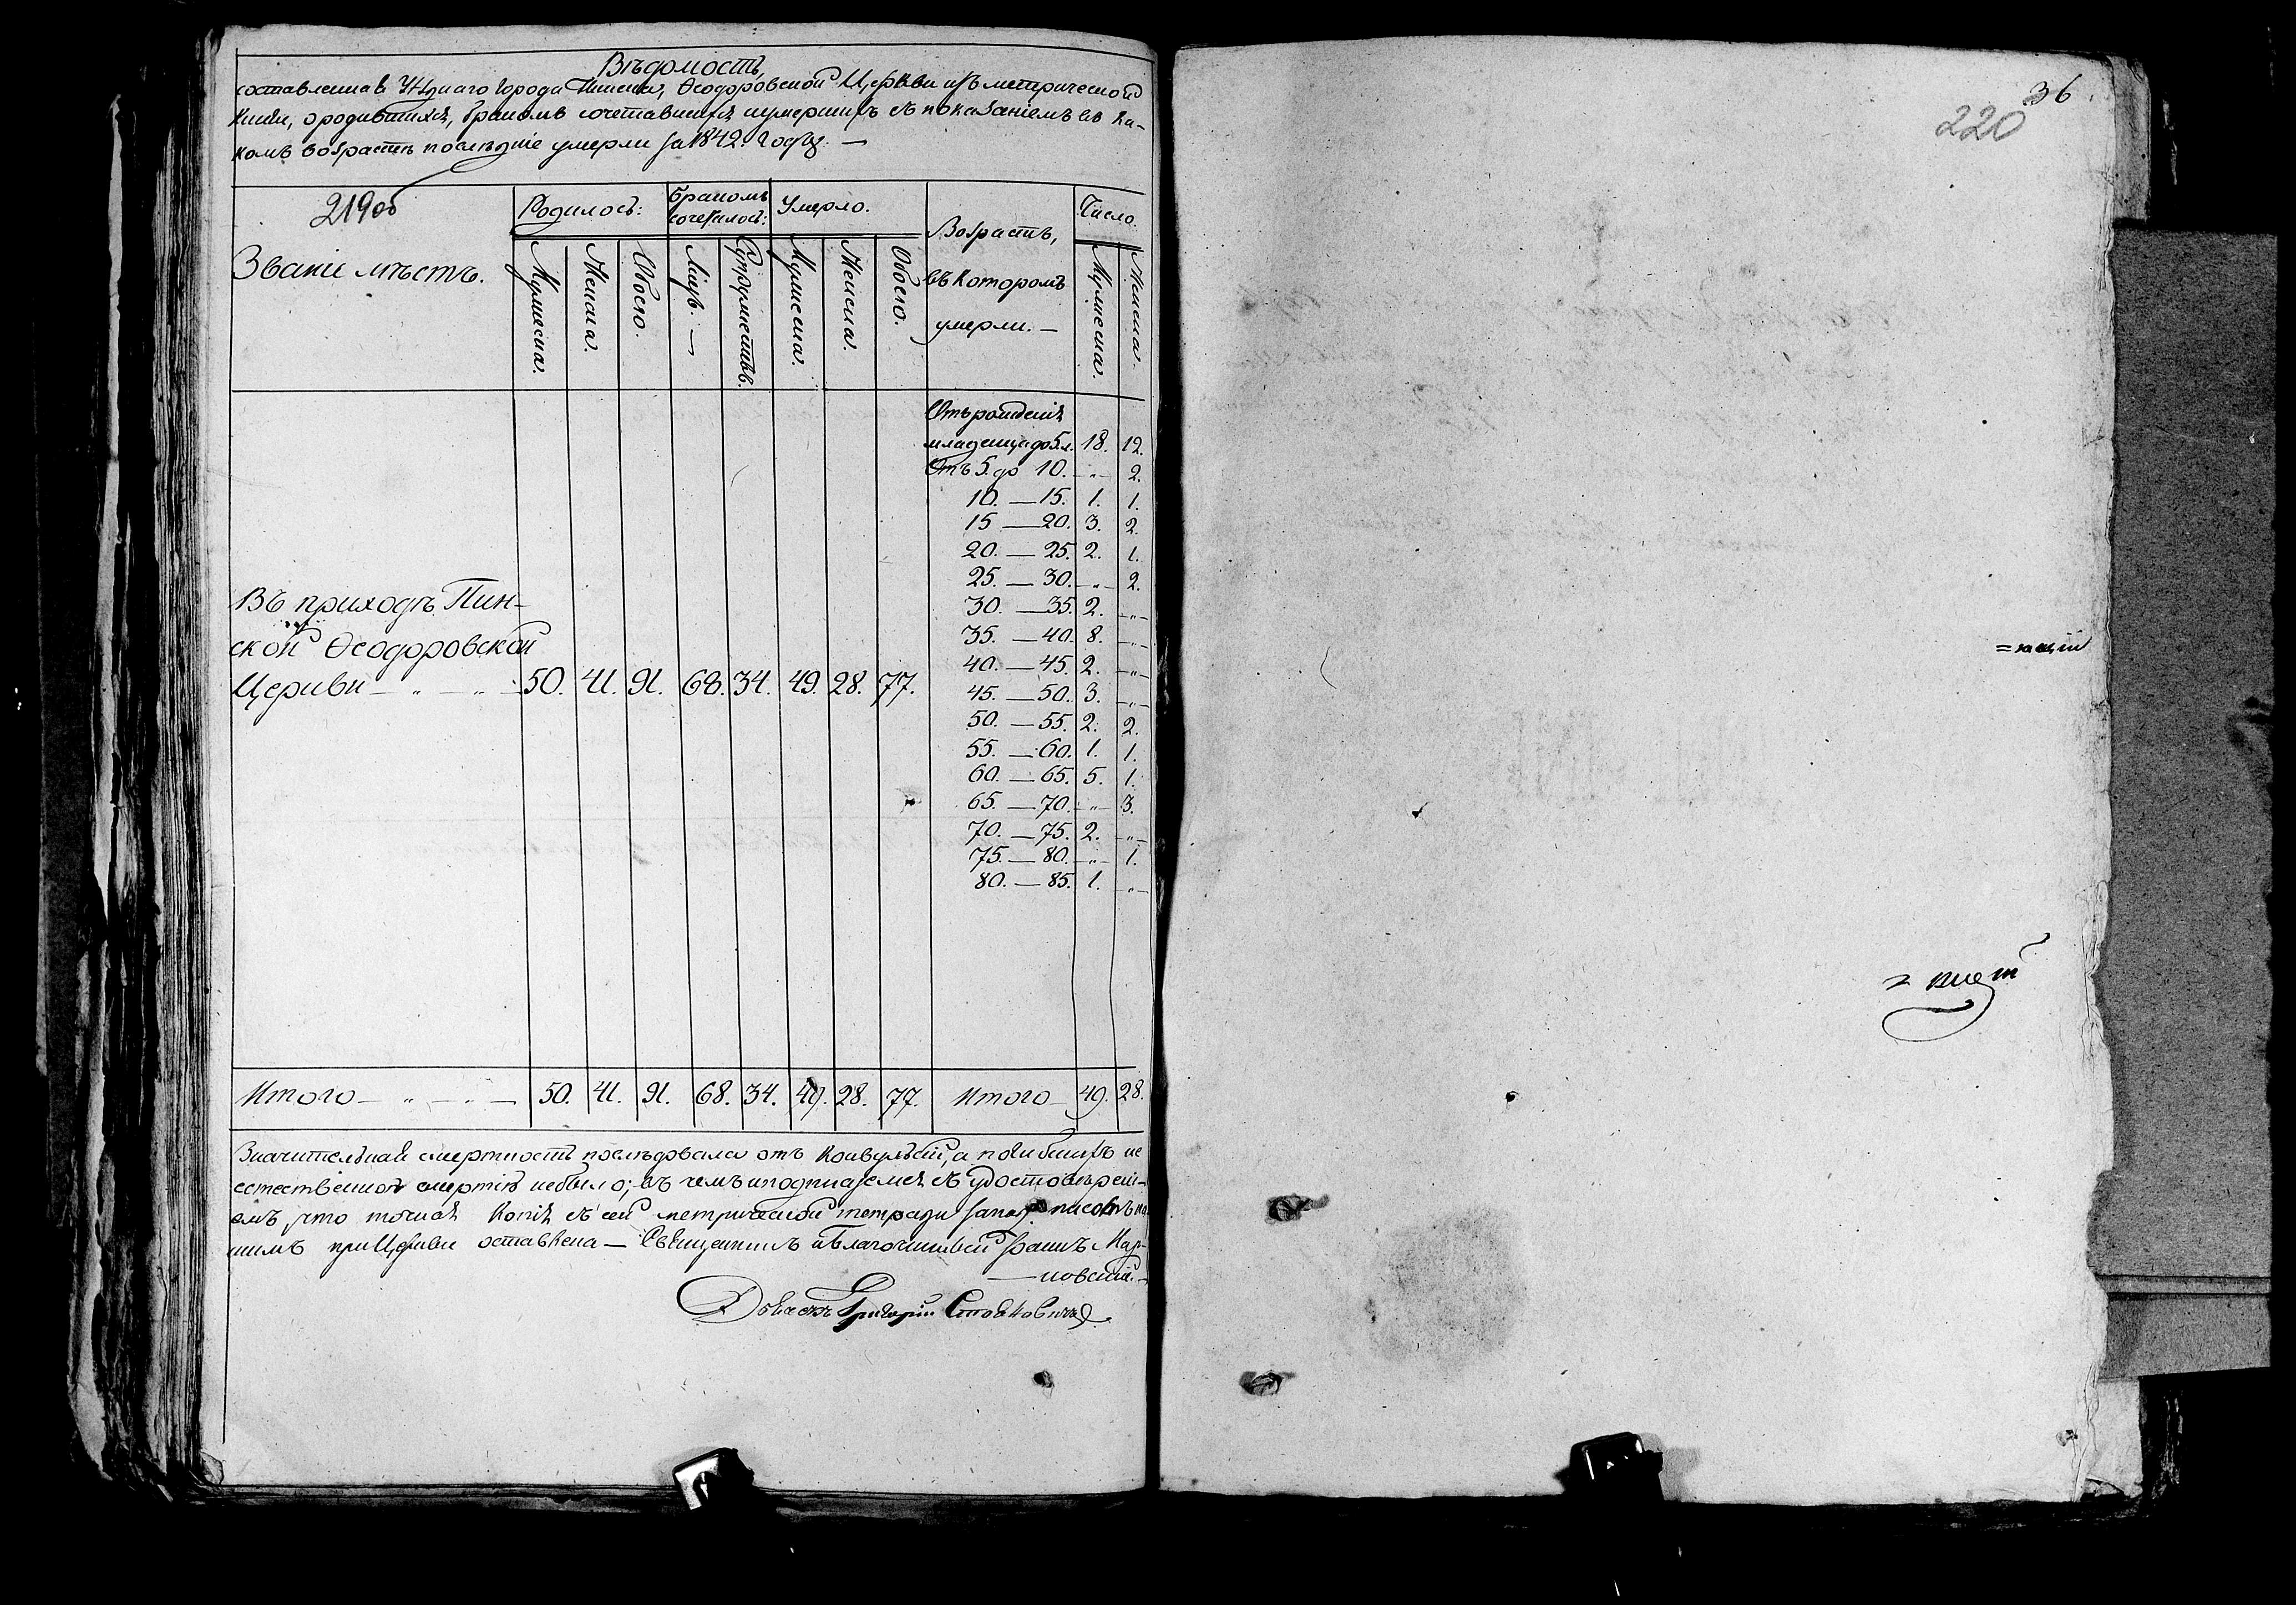 Вѣдомость,
составленная Уѣзднаго города Пинска, Ѳеодоровской Церкви изъ метрической
книги, о родившихся, бракомъ сочетавшихся и умершихъ съ показаніемъ въ ка-
комъ возрастѣ послѣдніе умерли за 1842. Годъ. —
219об
Званіе мѣстъ.
Родилось:
Бракомъ сочеталось:
Умерло.
Возрастъ, въ которомъ умерли. —
Число.
Мужеска.
Женска.
Обоего.
Лицъ. —
Супружествъ.
Мужеска.
Женска.
Обоего.
Мужеска.
Женска.
Отъ рожденія
младенца до 5 л. 18. 12.
Отъ 5. до 10. —„— 2.
10. — 15. 1. 1.
15 — 20. 3. 2.
20. — 25. 2. 1.
25. — 30. —„— 2.
30. — 35. 2. —„—
35. — 40. 8. —„—
40. — 45. 2. —„—
45. — 50. 3. —„—
50. — 55. 2. 2.
55. — 60. 1. 1.
60. — 65. 5. 1.
65. — 70. —„— 3.
70. — 75. 2. —„—
75. — 80. —„— 1.
80. — 85. 1. —„—
Въ приходѣ Пин-
ской Ѳеодоровской
Церкви — „ — „ — 50. 41. 91. 68. 34. 49. 28. 77.
Итого — „ — „ — 50. 41. 91. 68. 34. 49. 28. 77. Итого — 49. 28.
Значительная смертность послѣдовала отъ конвульсій, а погибшихъ не
естественной смертію небыло; въ чемъ и подписуемся съ удостовѣрені-
емъ что точная копія съ сей метрической тетради
при Церкви оставлена — Священникъ и Благочинный Іоаннъ Мар-
— новскій. —
Дьячекъ Григорій Стояковичъ
36.
220
= ющій